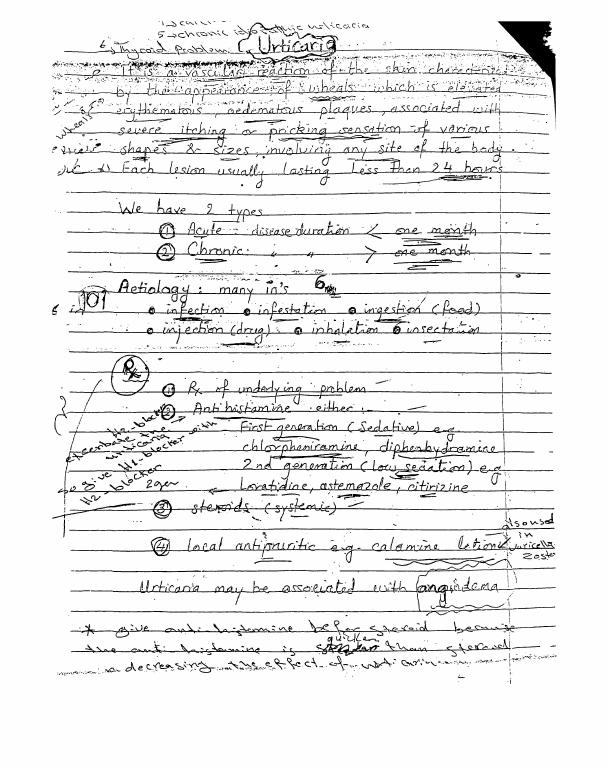 5 → chronic idiopathic urticaria
6 → Thyroid Problem
Urticaria
It is a vascular reaction of the skin characterized
by the appearance of wheals which is elevated
erythematous, oedematous plaques, associated with
severe itching or pricking sensation of various
shapes & sizes, involving any site of the body.
Each lesion usually lasting less than 24 hours
wheals
We have 2 types
① Acute : disease duration < one month
② Chronic: " " > one month
Aetiology : many in's 6
• infection • infestation • ingestion (food)
• injection (drug) • inhalation • insectation
Rx
① Rx of underlying problem
② Antihistamine either :-
First generation (Sedative) e.g
chlorpheniramine, diphenhydramine
2nd generation (low sedation) e.g
Loratidine, astemazole, citirizine
③ steroids (systemic)
④ local antipruritic e.g. calamine lotion
H2-blocker
urticaria
so give H1-blocker with
H2-blocker
2gen
also used
in
varicella
zoster
Urticaria may be associated with angiodema
* give anti histamine befor steroid because
the anti histamine is quicker than steroid
decreasing the effect of